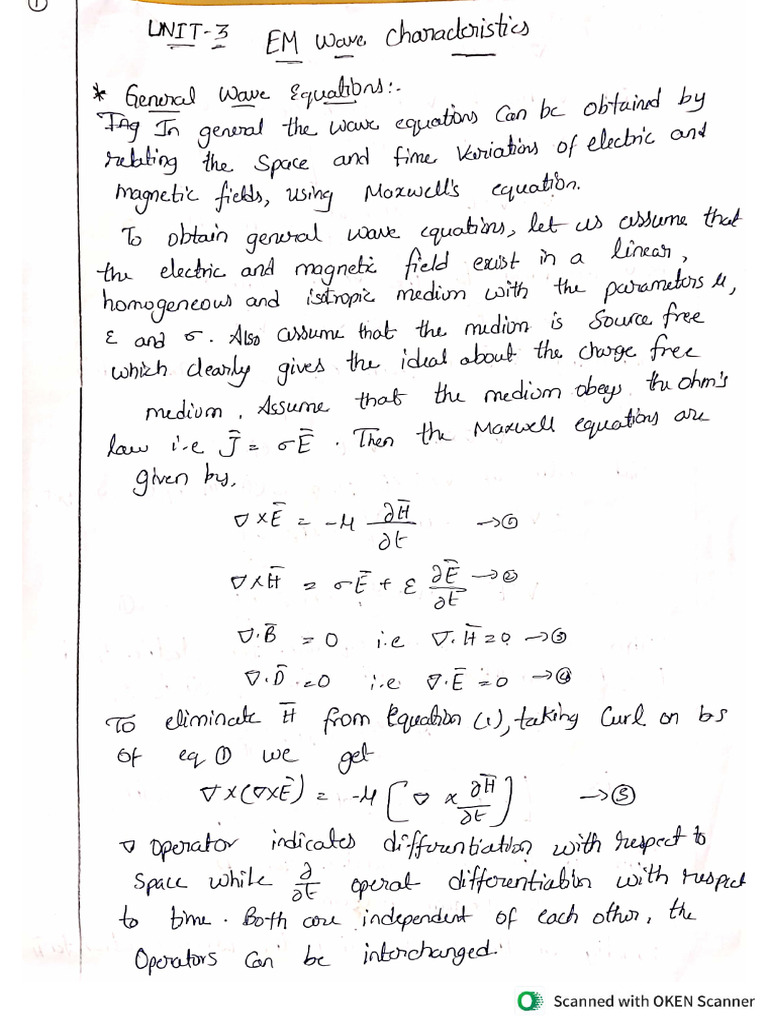 ①
UNIT-3 EM Wave Characteristics
* General Wave Equations:-
In general the wave equations can be obtained by
relating the space and time variations of electric and
magnetic fields, using Maxwell's equation.
To obtain general wave equations, let us assume that
the electric and magnetic field exist in a linear,
homogeneous and isotropic medium with the parameters μ,
ε and σ. Also assume that the medium is source free
which clearly gives the ideal about the charge free
medium. Assume that the medium obeys the ohm's
law i.e J̄ = σĒ. Then the Maxwell equations are
given by,
∇×Ē = -μ ∂H̄/∂t →①
∇×H̄ = σĒ + ε ∂Ē/∂t →②
∇.B̄ = 0 i.e ∇.H̄ = 0 →③
∇.D̄ = 0 i.e ∇.Ē = 0 →④
To eliminate H̄ from Equation (1), taking Curl on bs
of eq ① we get
∇×(∇×Ē) = -μ [∇ × ∂H̄/∂t] →⑤
∇ operator indicates differentiation with respect to
space while ∂/∂t operat differentiation with respect
to time. Both are independent of each other, the
Operators can be interchanged.
Scanned with OKEN Scanner